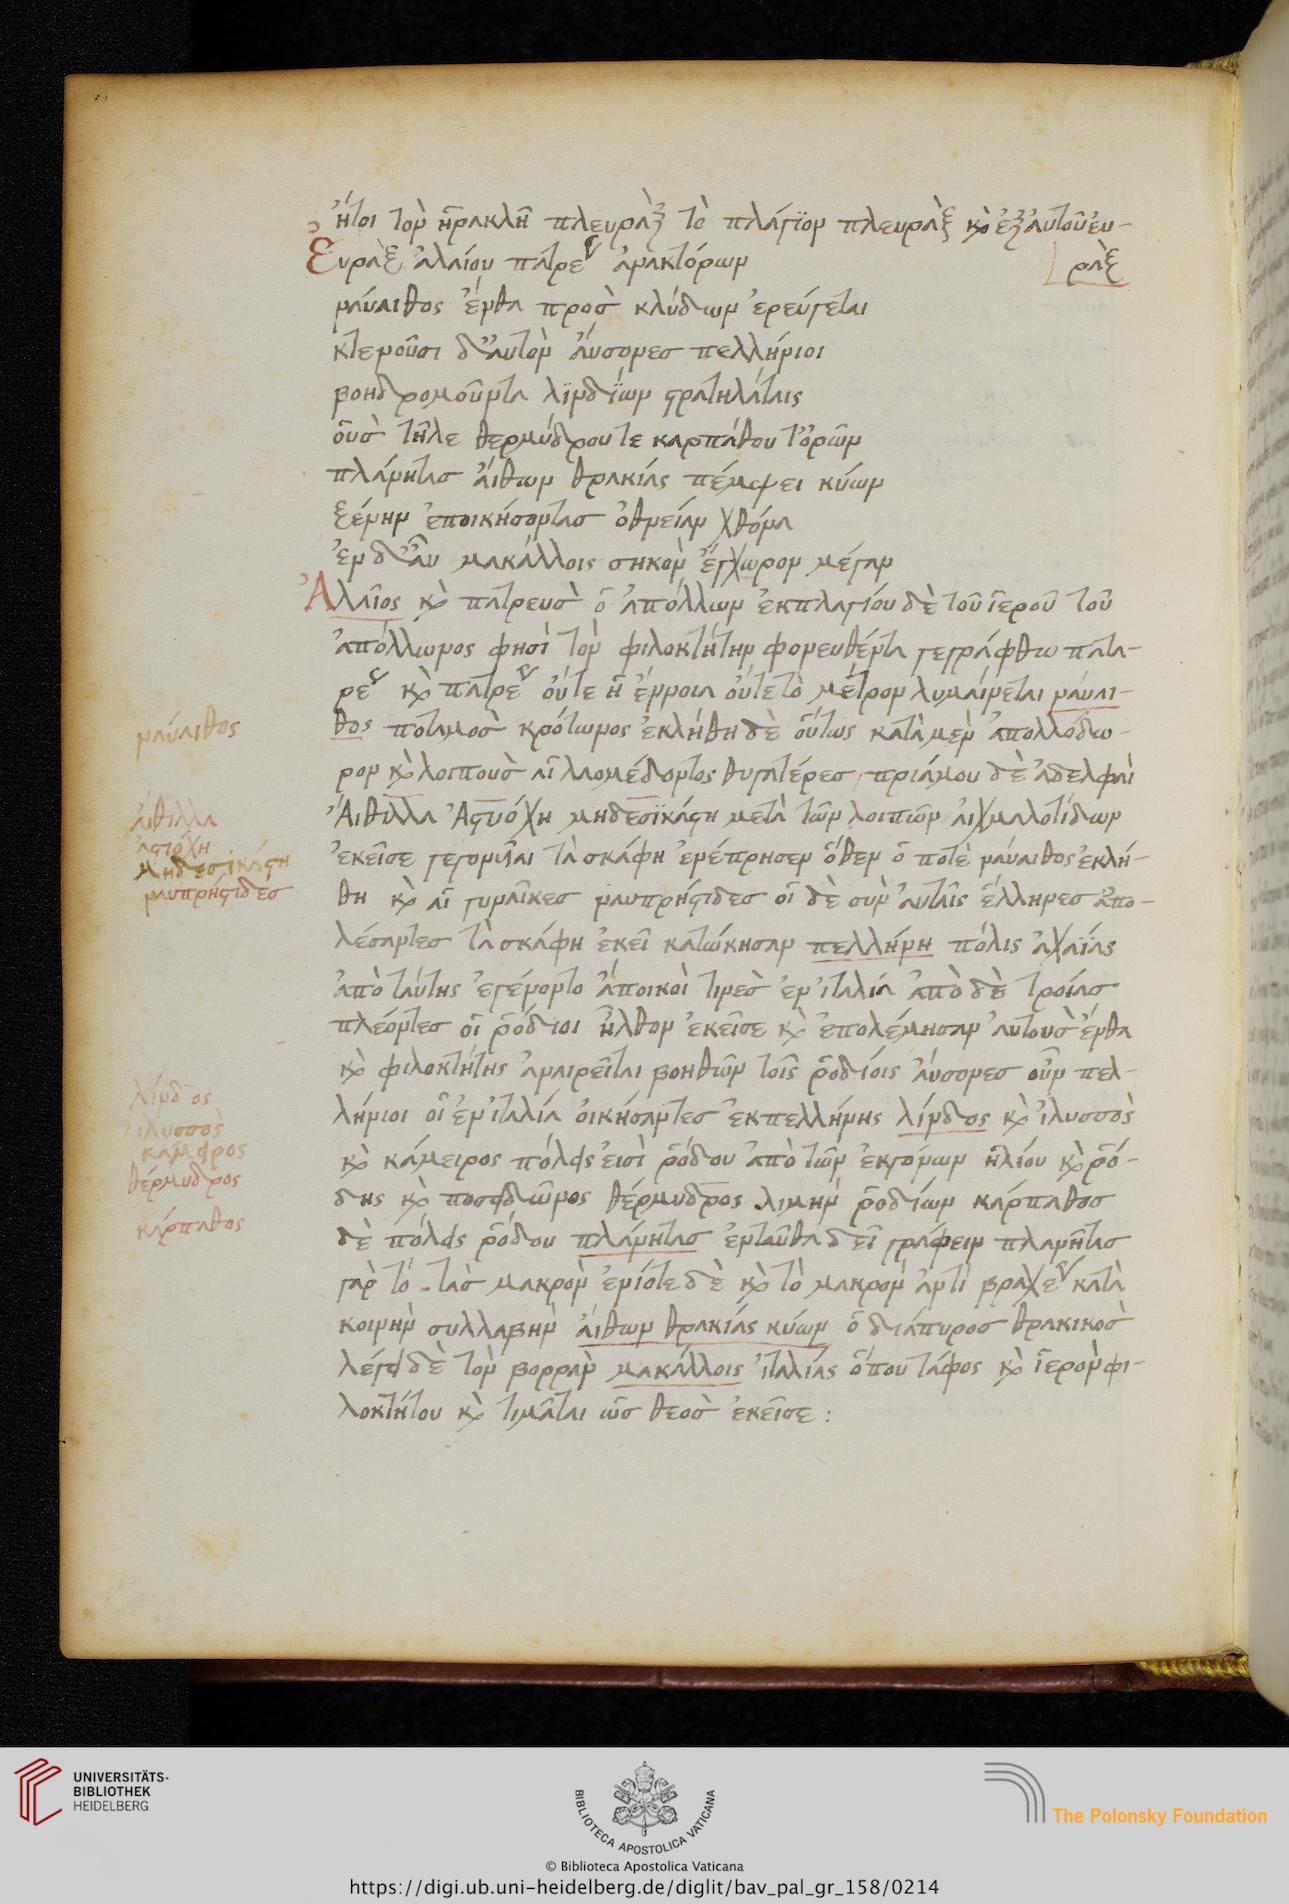 ἤτοι τὸν ἡρακλῆ πλευρὰξ τὸ πλάγϊον πλευρὰξ κ̀ ἐξ ἀυτοῦ ἐυ-
Ἐυρὰξ ἀλαίου πατρεῦ ἀνακτόρων
ρὰξ
ναύαιθος ἔνθα προσ̀ κλύδων ἐρεύγεται
κτενοῦσι δ' ἀυτὸν ἄυσονεσ πελλήνιοι
βοηδρομοῦντα λϊνδΐων στρατηλάταις
ὅυσ̀ τῆλε θερμύδρου τε καρπάθου τ' ὀρῶν
πλάνητασ ἄιθων θρακίας πέμψει κύων
ξένην ἐποικήσοντασ ὀθνείαν χθόνα
ἐν δ' ἂυ μακάλλοις σηκὸν ἔγχωρον μέγαν
Ἀλαῖος κ̀ πατρευσ̀ ὁ ἀπόλλων ἐκπλαγίου δὲ τοῦ ἱεροῦ τοῦ
ἀπόλλωνος φησὶ τὸν φιλοκτήτην φονευθέντα γεγράφθω πατα-
ρεῦ κ̀ πατρεῦ ὀύτε ἡ ἔννοια ὀύτε τὸ μέτρον λυμαίνεται ναύαι-
θος ποταμοσ̀ κρότωνος ἐκλήθη δὲ ὅυτως κατὰ μεν̀ ἀπολλόδω-
ρον κ̀ λοιπουσ̀ αἱ λαομέδοντος θυγατέρεσ πριάμου δὲ ἀδελφαὶ
Ἄιθιλλα Ἀστυόχη μηδεσϊκάστη μετὰ τῶν λοιπῶν ἀιχμαλοτίδων
ἐκεῖσε γεγονυῖαι τὰ σκάφη ἐνέπρησεν ὅθεν ὁ ποτὲ ναύαιθος ἐκλή-
θη κ̀ αἱ γυναῖκεσ ναυπρήστιδεσ οἱ δὲ συν̀ ἀυταῖς ἕλληνεσ ἀπο-
λέσαντεσ τὰ σκάφη ἐκεῖ κατώκησαν πελλήνη πόλις ἀχαΐας
ἀπὸ ταύτης ἐγένοντο ἄποικοὶ τινεσ̀ ἐν ἰταλία ἀπὸ δὲ τροίασ
πλέοντεσ οἱ ῥόδιοι ἦλθον ἐκεῖσε κ̀ ἐπολέμησαν ἀυτουσ̀ ἔνθα
κ̀ φιλοκτήτης ἀναιρεῖται βοηθῶν τοῖς ῥοδίοις ἄυσονεσ οὖν πελ-
λήνιοι οἱ ἐν ἰταλία ὀικήσαντεσ ἐκπελλήνης λίνδος κ̀ ἰλυσσοσ̀
κ̀ κάμειρος πόλεις ἐισὶ ῥόδου ἀπὸ τῶν ἐκγόνων ἡλίου κ̀ ῥό-
δης κ̀ ποσειδῶνος θέρμυδρος λιμην̀ ῥοδίων κάρπαθοσ
δὲ πόλεις ῥόδου πλάνητασ ἐνταῦθα δεῖ γράφειν πλανῆτασ
γαρ̀ τό .τασ̀ μακρον̀ ἐνίοτε δὲ κ̀ τὸ μακρον̀ ἀντὶ βραχεῦ κατὰ
κοινην̀ συλλαβην̀ ἄιθων θρακίας κύων ὁ διάπυροσ θρακικοσ̀
λέγει δὲ τον̀ βορραν̀ μακάλλοις ἰταλίας ὅπου τάφος κ̀ ἱερον̀ φι-
λοκτήτου κ̀ τιμᾶται ὡσ θεοσ̀ ἐκεῖσε :
ναύαιθος
ἄιθιλλα
ἀστιόχη
μηδεσικάστη
ναυπρήστιδεσ
λίνδος
ἰλυσσοσ̀
κάμειρος
θέρμυδρος
κάρπαθος
UNIVERSITÄTS-
BIBLIOTHEK
HEIDELBERG
BIBLIOTECA APOSTOLICA VATICANA
The Polonsky Foundation
© Biblioteca Apostolica Vaticana
https://digi.ub.uni-heidelberg.de/diglit/bav_pal_gr_158/0214